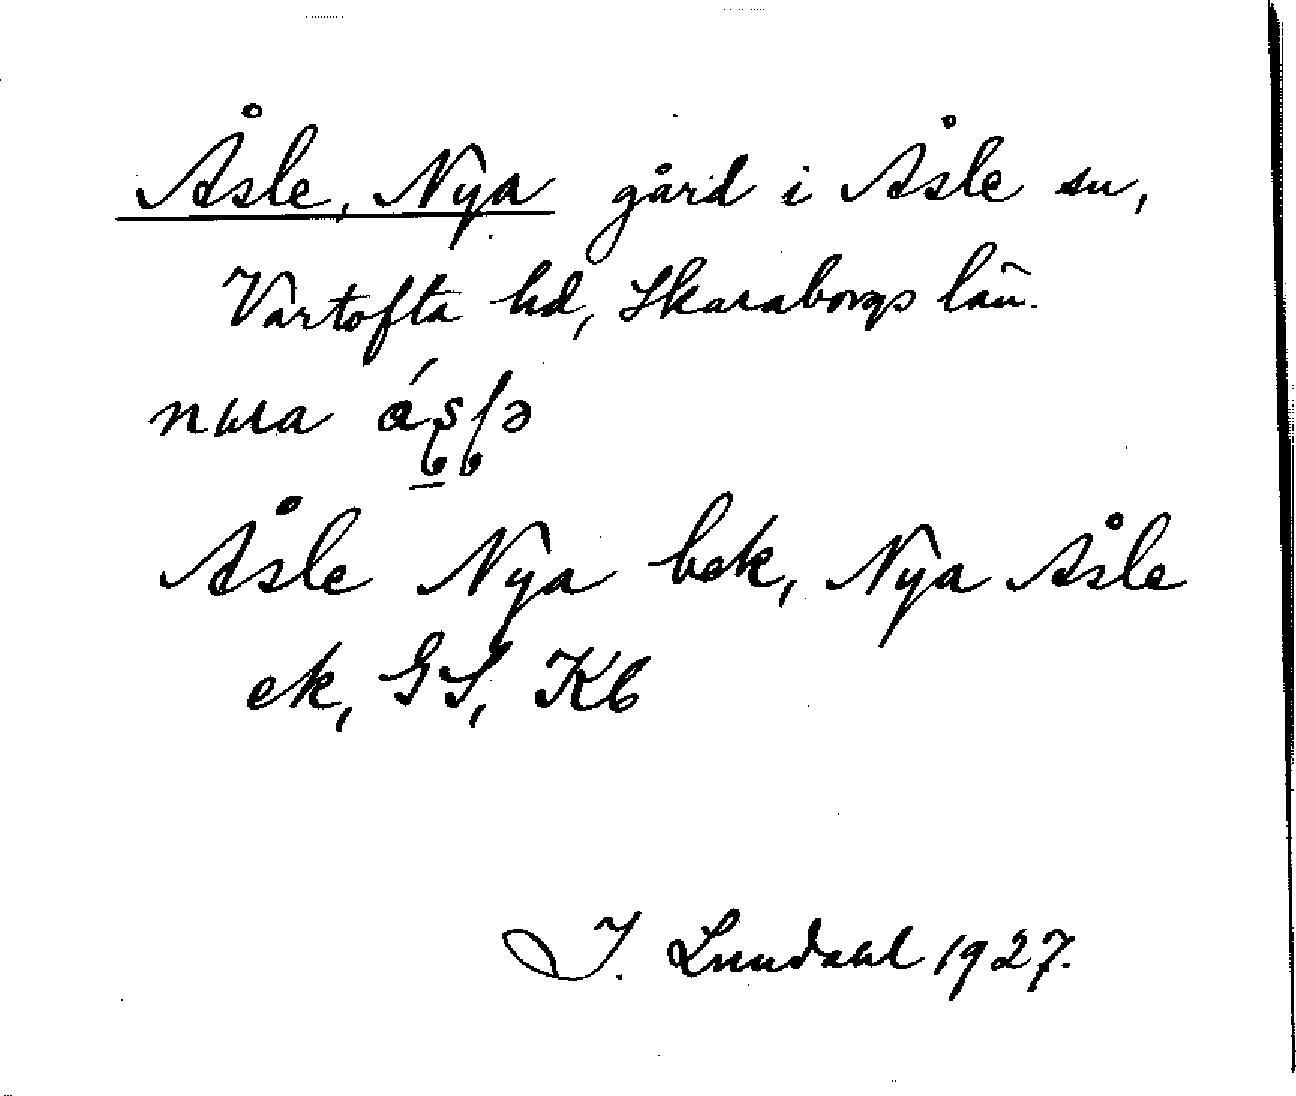 Åsle, Nya gård i Åsle sn,
Vartofta hd, Skaraborgs län.
Åsle Nya bek, Nya Åsle
ek, GS, Kb
I. Lundahl 1927.